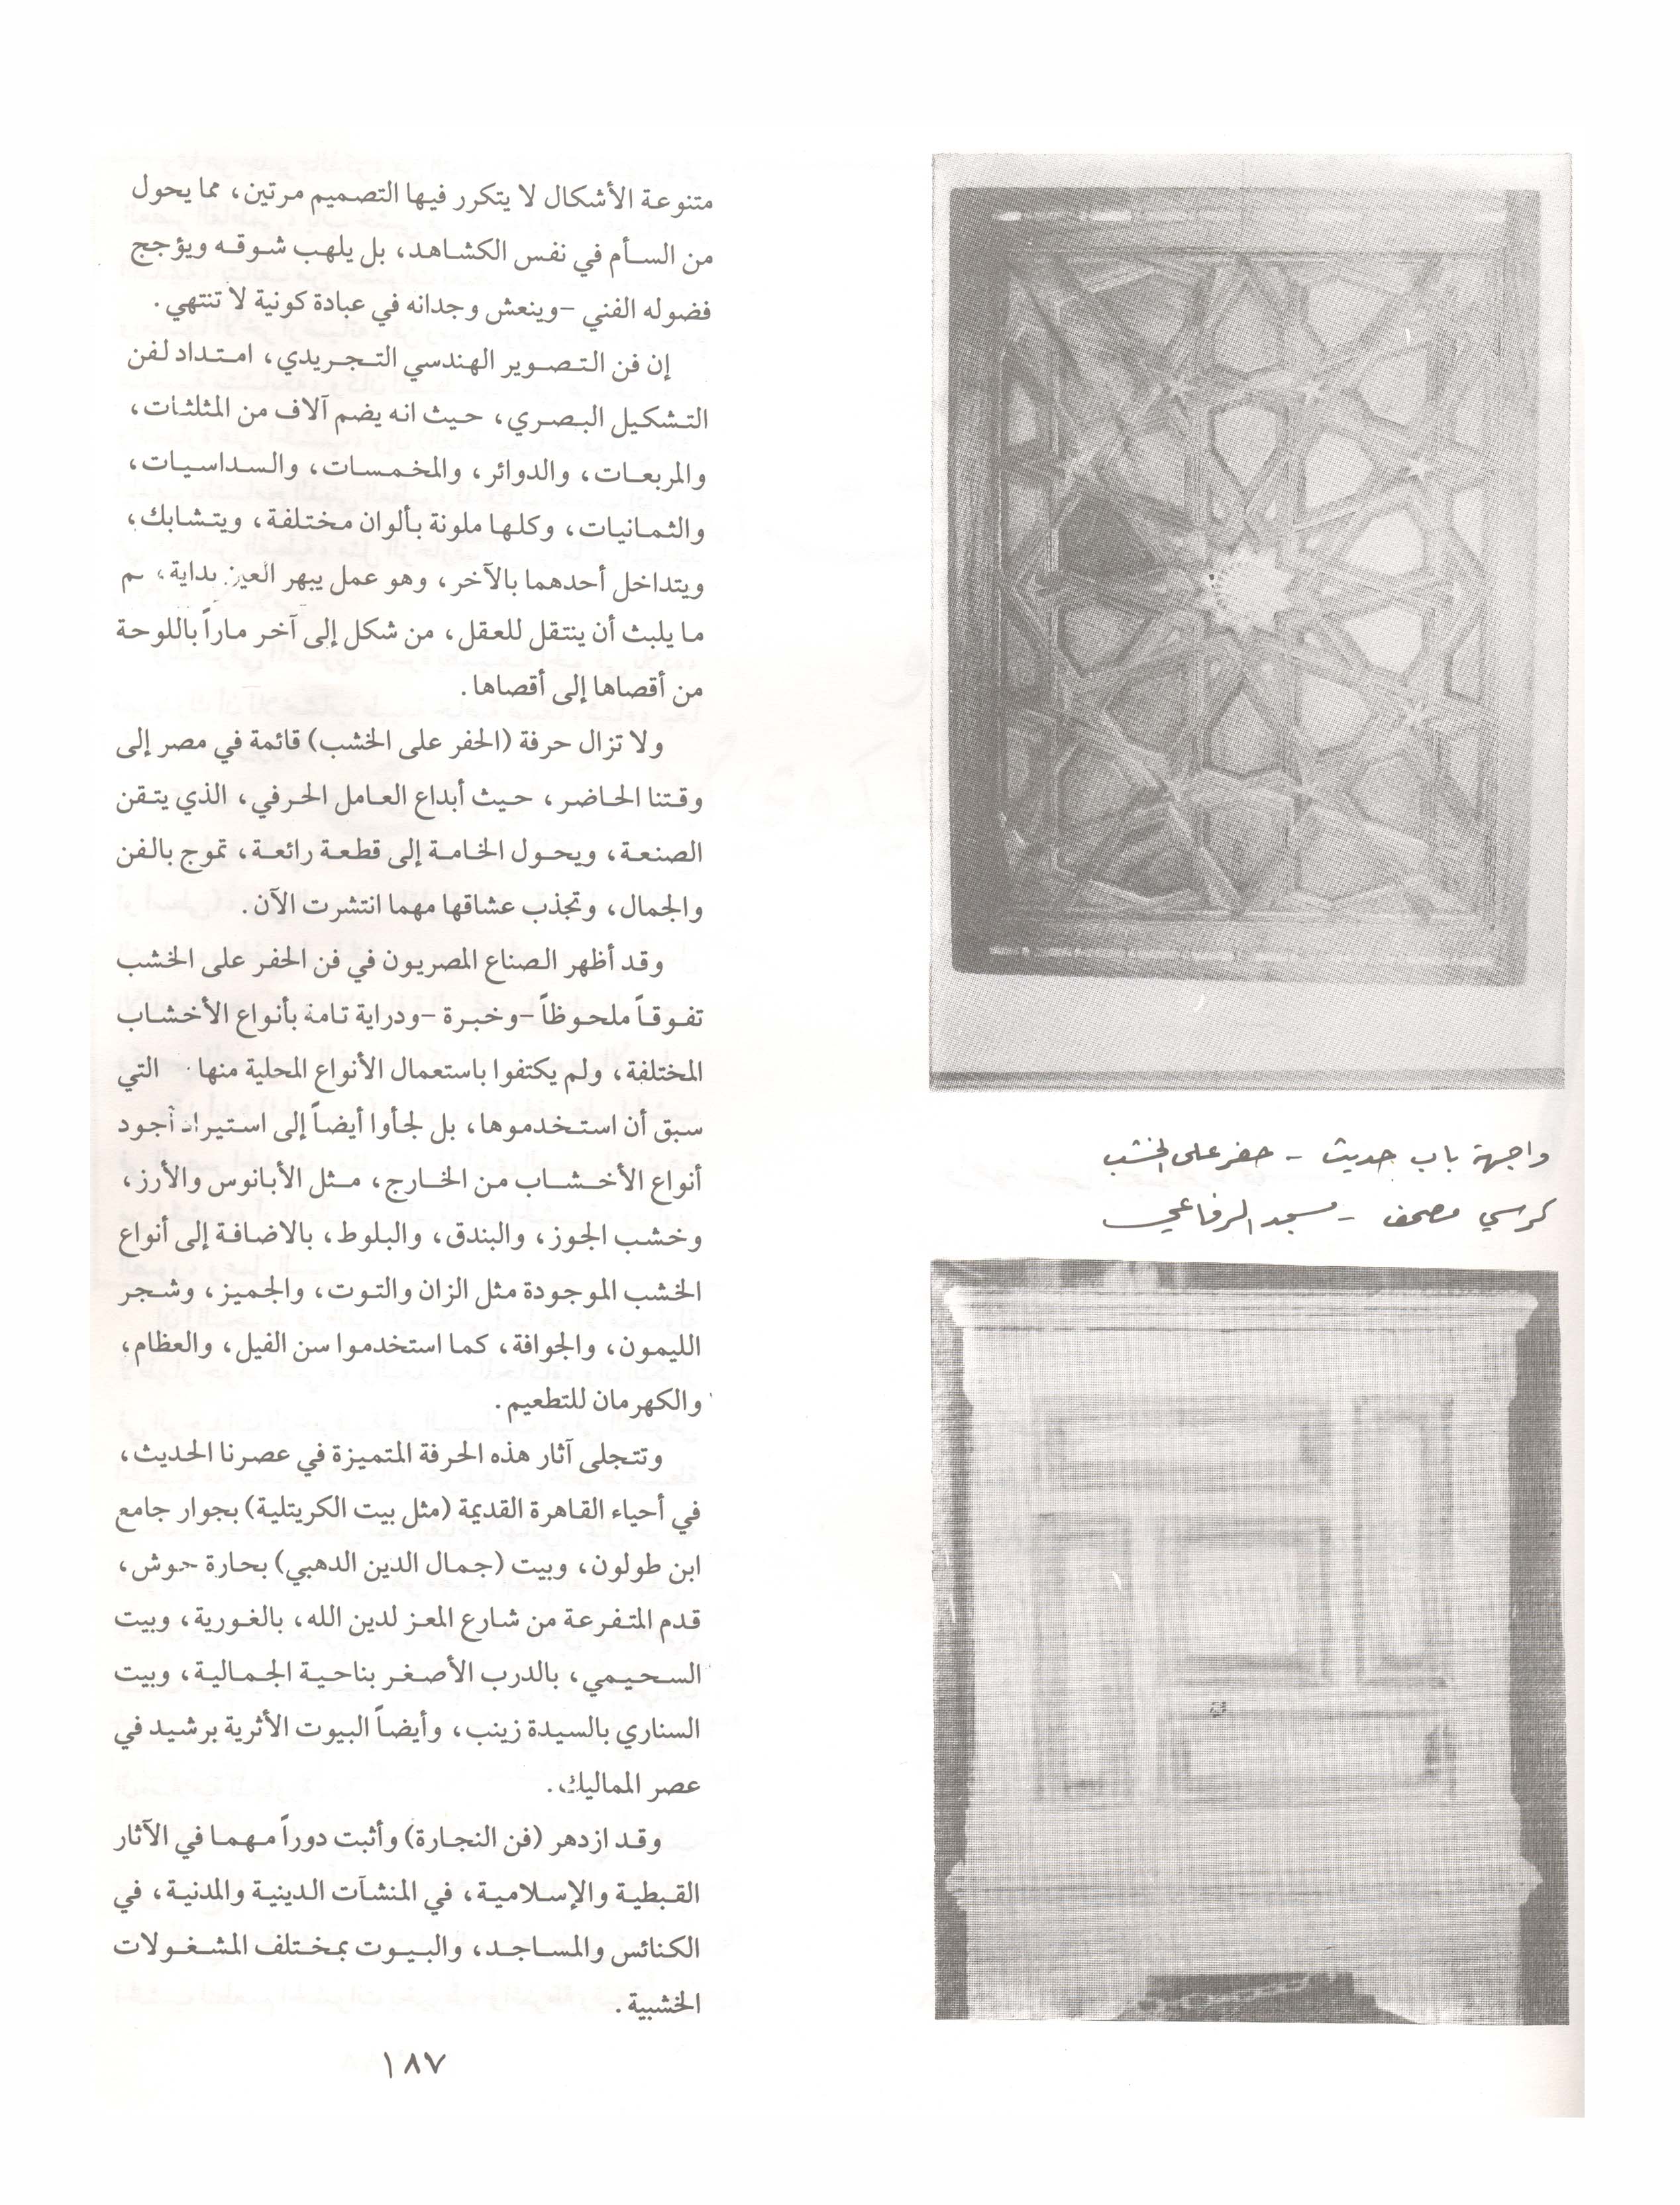 واجهة باب حديث - حفر على الخشب
كرسي مصحف - مسجد الرفاعي
متنوعة الأشكال لا يتكرر فيها التصميم مرتين، مما يحول
من السأم في نفس الكشاهد، بل يلهب شوقه ويؤجج
فضوله الفني -وينعش وجدانه في عبادة كونية لا تنتهي.
إن فن التصوير الهندسي التجريدي، امتداد لفن
التشكيل البصري، حيث انه يضم آلاف من المثلثات،
والمربعات، والدوائر، والمخمسات، والسداسيات،
والثمانيات، وكلها ملونة بألوان مختلفة، ويتشابك،
ويتداخل أحدهما بالآخر، وهو عمل يبهر العين بداية، ثم
ما يلبث أن ينتقل للعقل، من شكل إلى آخر ماراً باللوحة
من أقصاها إلى أقصاها.
ولا تزال حرفة (الحفر على الخشب) قائمة في مصر إلى
وقتنا الحاضر، حيث أبداع العامل الحرفي، الذي يتقن
الصنعة، ويحول الخامة إلى قطعة رائعة، تموج بالفن
والجمال، وتجذب عشاقها مهما انتشرت الآن.
وقد أظهر الصناع المصريون في فن الحفر على الخشب
تفوقاً ملحوظاً -وخبرة -ودراية تامة بأنواع الأخشاب
المختلفة، ولم يكتفوا باستعمال الأنواع المحلية منها التي
سبق أن استخدموها، بل لجأوا أيضاً إلى استيراد أجود
أنواع الأخشاب من الخارج، مثل الأبانوس والأرز،
وخشب الجوز، والبندق، والبلوط، بالاضافة إلى أنواع
الخشب الموجودة مثل الزان والتوت، والجميز، وشجر
الليمون، والجوافة، كما استخدموا سن الفيل، والعظام،
والكهرمان للتطعيم.
وتتجلى آثار هذه الحرفة المتميزة في عصرنا الحديث،
في أحياء القاهرة القديمة (مثل بيت الكريتلية) بجوار جامع
ابن طولون، وبيت (جمال الدين الدهبي) بحارة حوش،
قدم المتفرعة من شارع المعز لدين الله، بالغورية، وبيت
السحيمي، بالدرب الأصغر بناحية الجمالية، وبيت
السناري بالسيدة زينب، وأيضاً البيوت الأثرية برشيد في
عصر المماليك.
وقد ازدهر (فن النجارة) وأثبت دوراً مهما في الآثار
القبطية والإسلامية، في المنشآت الدينية والمدنية، في
الكنائس والمساجد، والبيوت بمختلف المشغولات
الخشبية.
١٨٧